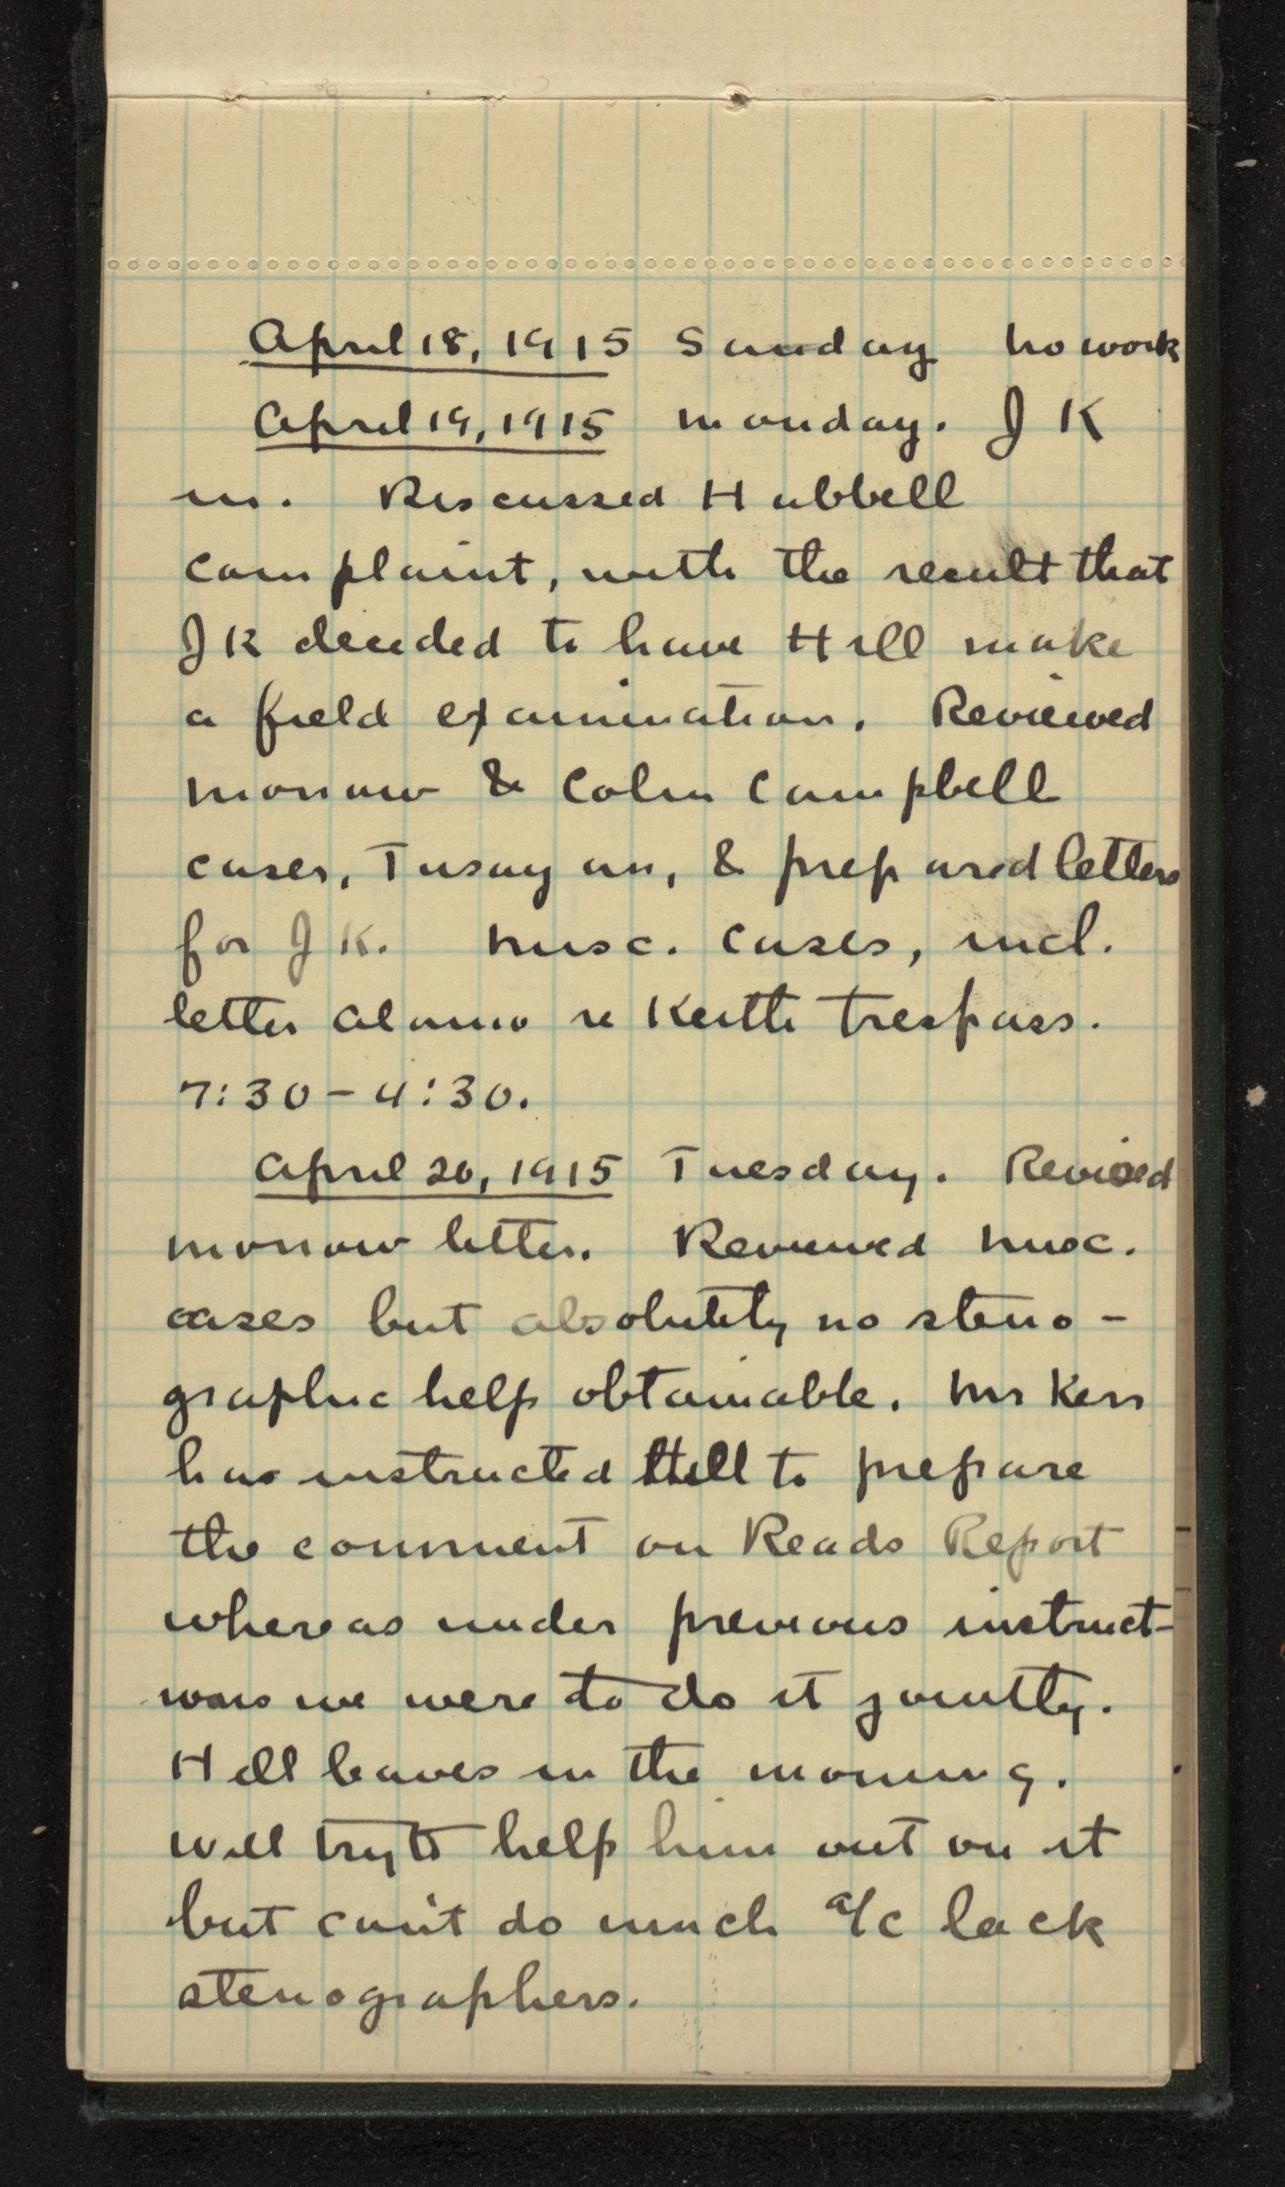 April 18, 1915 Sunday No work
April 19, 1915 Monday. J K
in. Discussed Hubbell
complaint, with the result that
J K decided to have Hill make
a field examination. Reviewed
Morrow & Colin Campbell
cases, Tusayan, & prepared letters
for J K. Misc. cases, incl.
letter Alamo re Keith trespass.
7:30-4:30.
April 20, 1915 Tuesday. Revised
Morrow letter. Reviewed misc.
cases but absolutely no steno-
graphic help obtainable. Mr Kerr
has instructed Hill to prepare
the comment on Reads Report
whereas under previous instruct-
ions we were to do it jointly.
Hill leaves in the morning.
Will try to help him out on it
but can't do much a/c lack
stenographers.